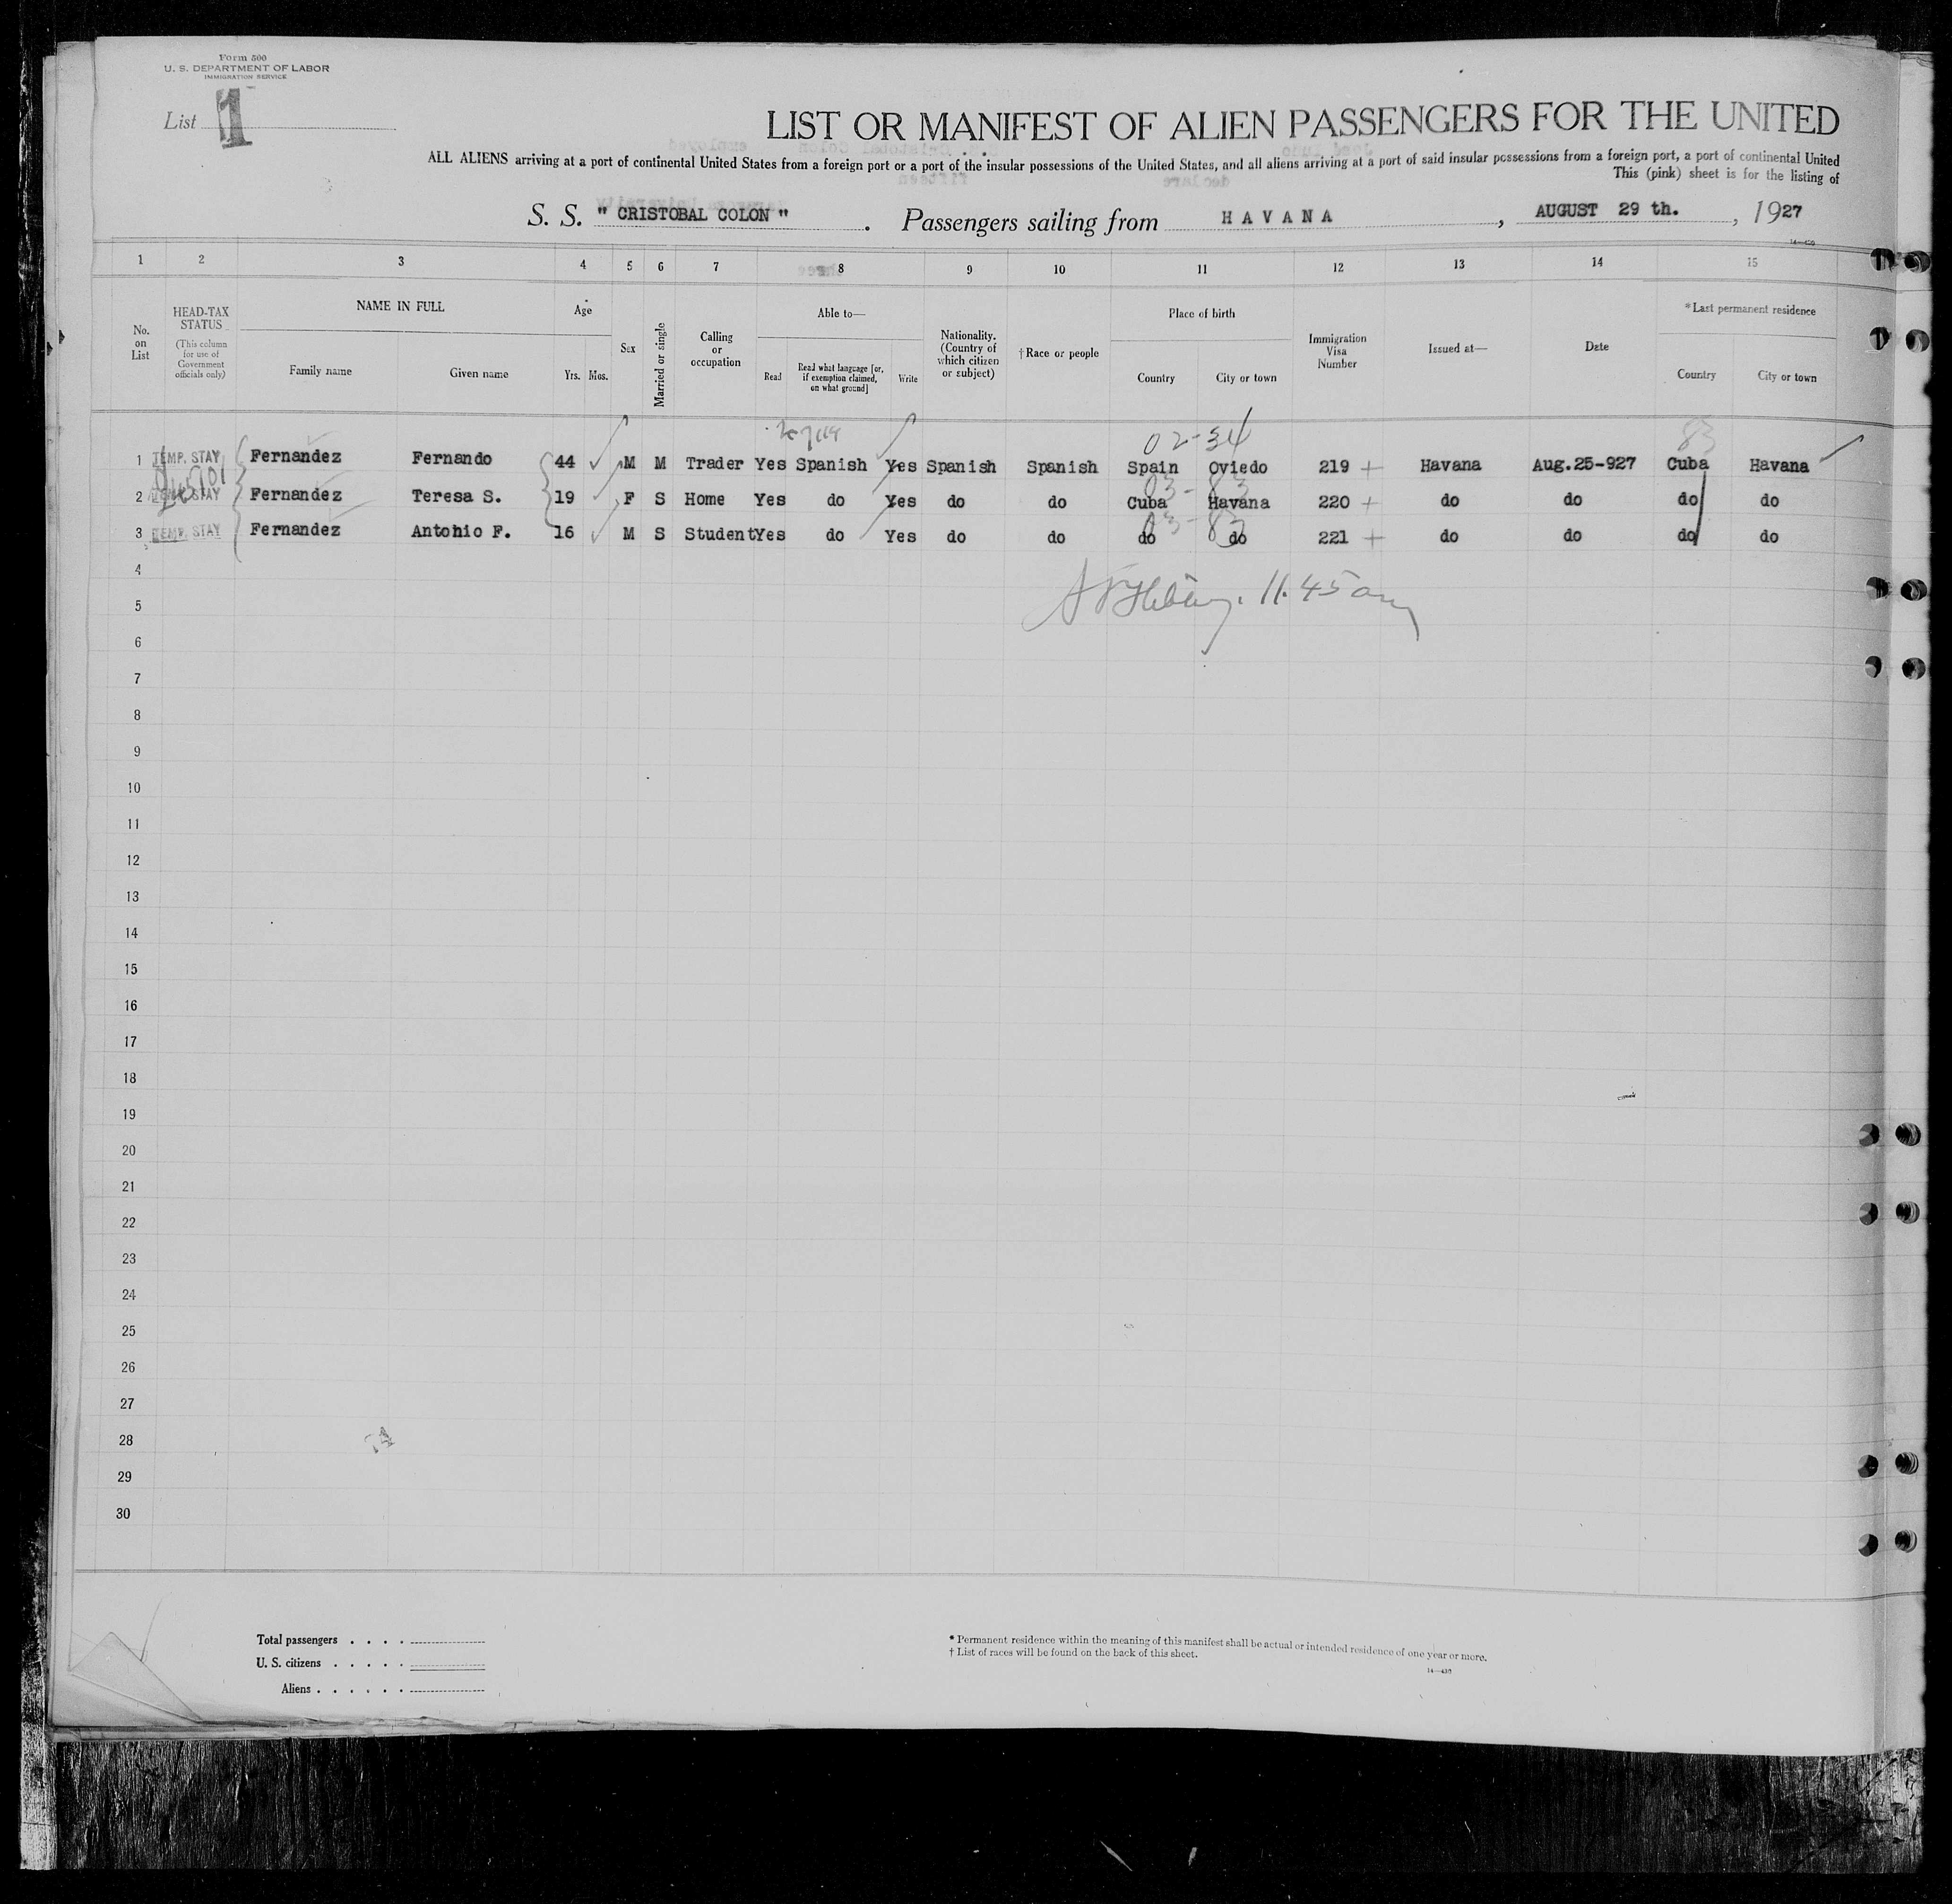 Form 500
U. S. DEPARTMENT OF LABOR
IMMIGRATION SERVICE
List 1
LIST OR MANIFEST OF ALIEN PASSENGERS FOR THE UNITED
ALL ALIENS arriving at a port of continental United States from a foreign port or a port of the insular possessions of the United States, and all aliens arriving at a port of said insular possessions from a foreign port, a port of continental United
This (pink) sheet is for the listing of
S. S. " CRISTOBAL COLON " . Passengers sailing from HAVANA , AUGUST 29 th. , 1927
1 2 3 4 5 6 7 8 9 10 11 12 13 14 15
No. on List
HEAD-TAX STATUS
(This column for use of Government officials only)
NAME IN FULL
Family name Given name
Age
Yrs. Mos.
Sex
Married or single
Calling or occupation
Able to—
Read
Read what language [or, if exemption claimed, on what ground]
Write
Nationality. (Country of which citizen or subject)
†Race or people
Place of birth
Country City or town
Immigration Visa Number
Issued at—
Date
*Last permanent residence
Country City or town
02-34 83
1 TEMP. STAY Fernandez Fernando 44 M M Trader Yes Spanish Yes Spanish Spanish Spain Oviedo 219 + Havana Aug.25-927 Cuba Havana
03-83
2 STAY Fernandez Teresa S. 19 F S Home Yes do Yes do do Cuba Havana 220 + do do do do
03-83
3 TEMP. STAY Fernandez Antonio F. 16 M S Student Yes do Yes do do do do 221 + do do do do
4
11.45 am
5
6
7
8
9
10
11
12
13
14
15
16
17
18
19
20
21
22
23
24
25
26
27
28
29
30
Total passengers . . . .
U. S. citizens . . . . .
Aliens . . . . . .
* Permanent residence within the meaning of this manifest shall be actual or intended residence of one year or more.
† List of races will be found on the back of this sheet.